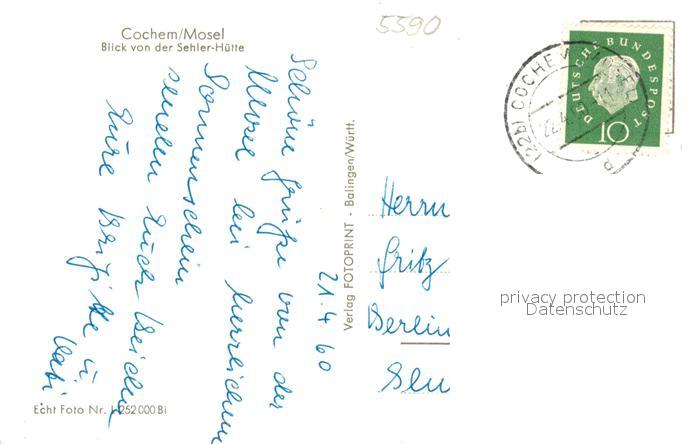 5590
Cochem/Mosel
Blick von der Sehler-Hütte
21.4.60
Schöne Grüße von der
Mosel bei herrlichem
Sonnenschein
senden Euch beiden
Eure
u.
Verlag FOTOPRINT - Balingen/Württ.
Echt Foto Nr. 252000 Bi
DEUTSCHE BUNDESPOST
10
(22b) COCHEM
22.4.
Herrn
Fritz
Berlin
privacy protection
Datenschutz